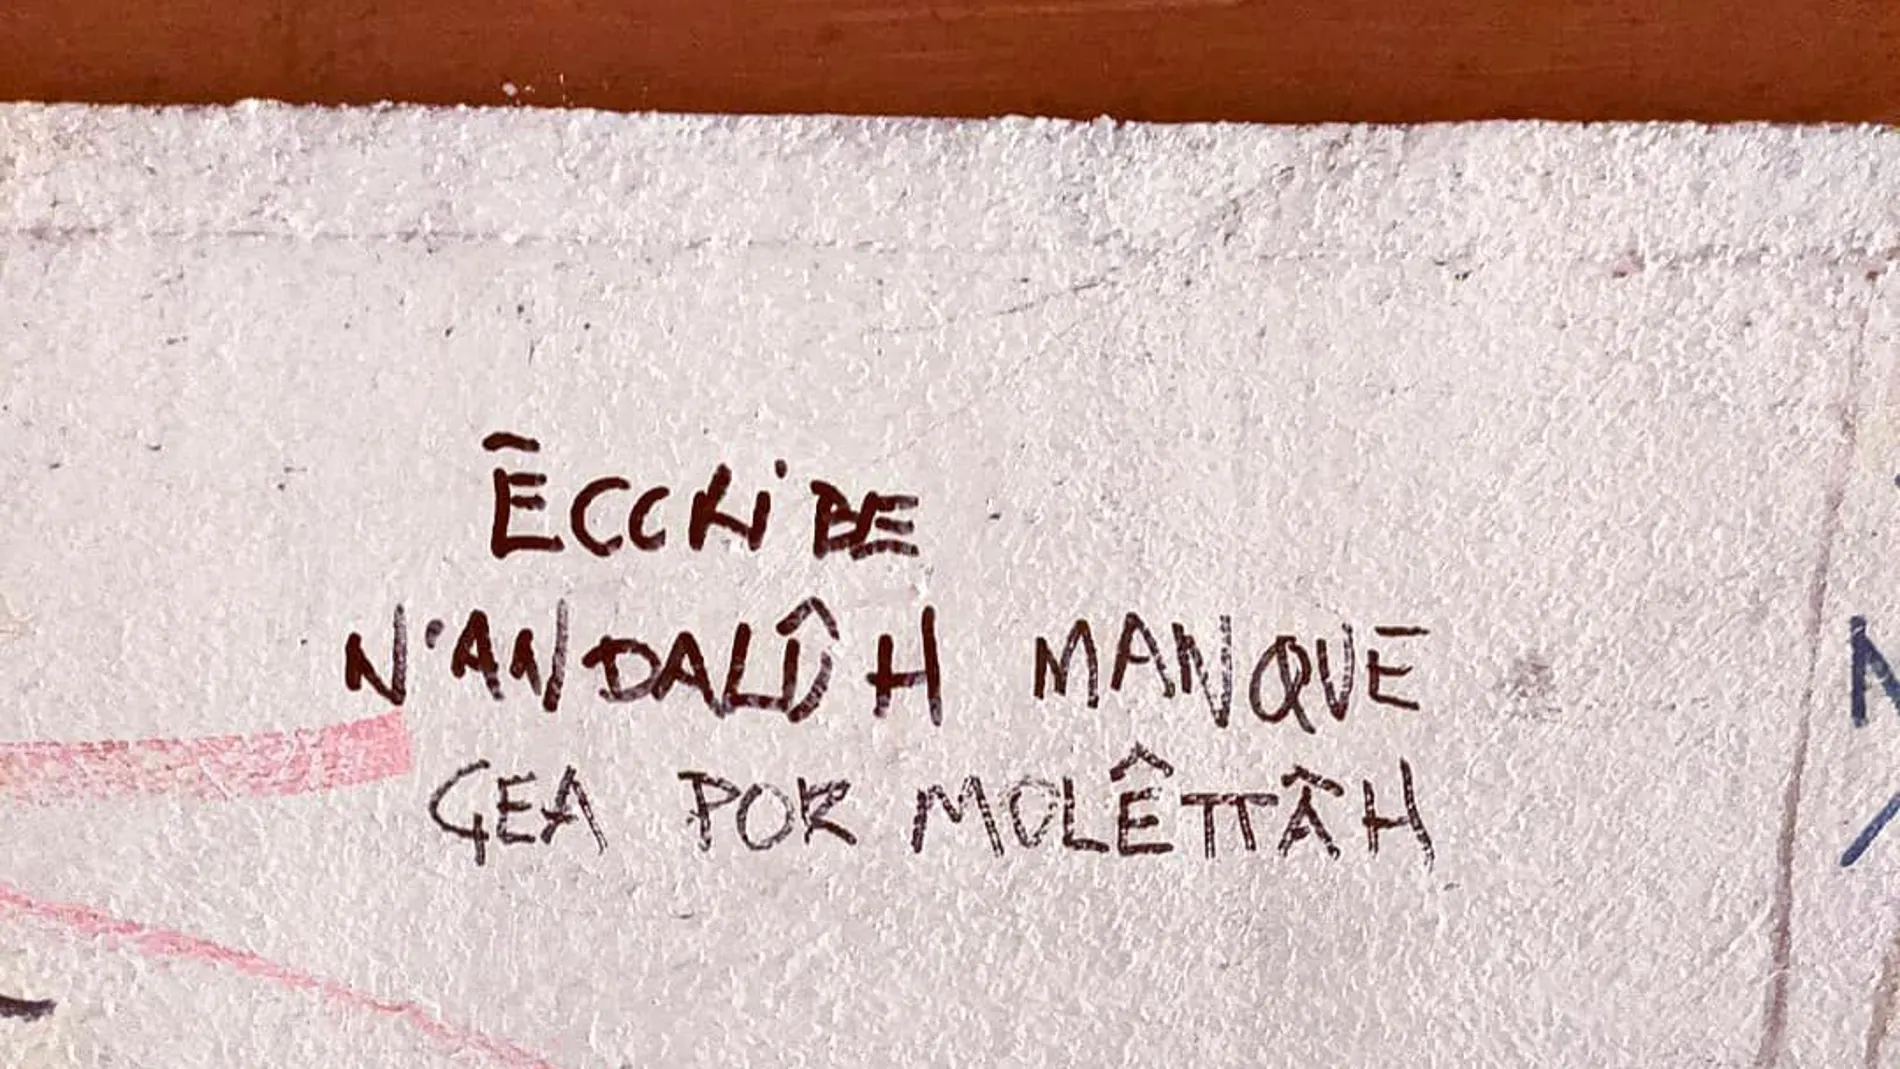 ÊCCRiBE
N'ANDALÛH MANQUE
ÇEA POR MOLÊTTÂH